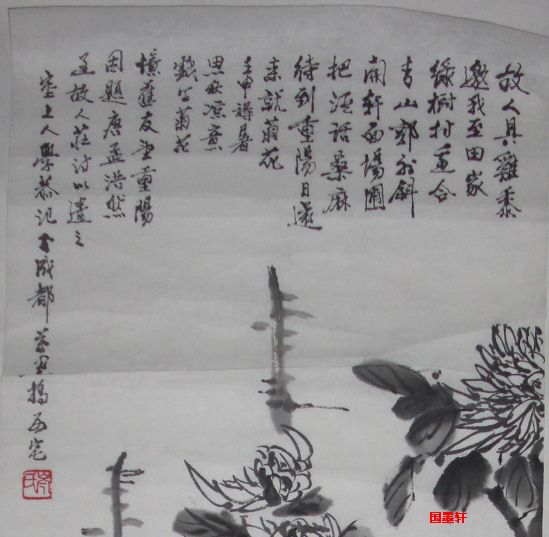 故人具雞黍
邀我至田家
綠樹村邊合
青山郭外斜
開軒面場圃
把酒話桑麻
待到重陽日還
來就菊花
壬申溽暑
思如凉意
戲写菊花
憶舊友生重陽
因題唐孟浩然
過故人莊詩以遣之
空上人學恭记 成都
橋西宅
国墨轩